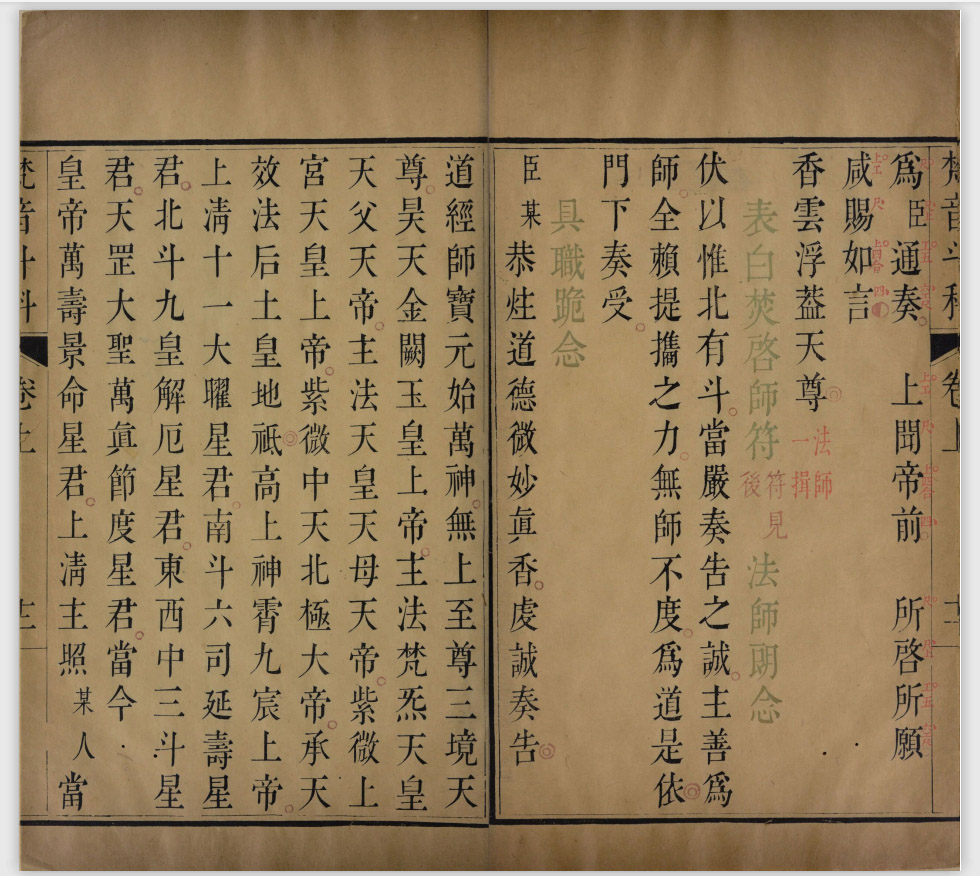 梵音斗科 卷上
爲臣通奏 上聞帝前 所啓所願
咸賜如言
香雲浮蓋天尊 法師一揖
表白焚啓師符 符見後 法師朗念
伏以惟北有斗當嚴奏告之誠主善爲
師全賴提攜之力無師不度爲道是依
門下奏受
具職跪念
臣某恭炷道德微妙眞香虔誠奏告
道經師寶元始萬神無上至尊三境天
尊昊天金闕玉皇上帝主法梵炁天皇
天父天帝主法天皇天母天帝紫微上
宮天皇上帝紫微中天北極大帝承天
效法后土皇地祇高上神霄九宸上帝
上淸十一大曜星君南斗六司延壽星
君北斗九皇解厄星君東西中三斗星
君天罡大聖萬眞節度星君當今
皇帝萬壽景命星君上淸主照某人當
梵音斗科 卷上